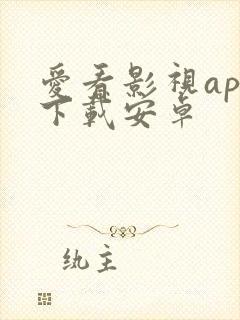 愛看影視ap
下載安卓
紈主